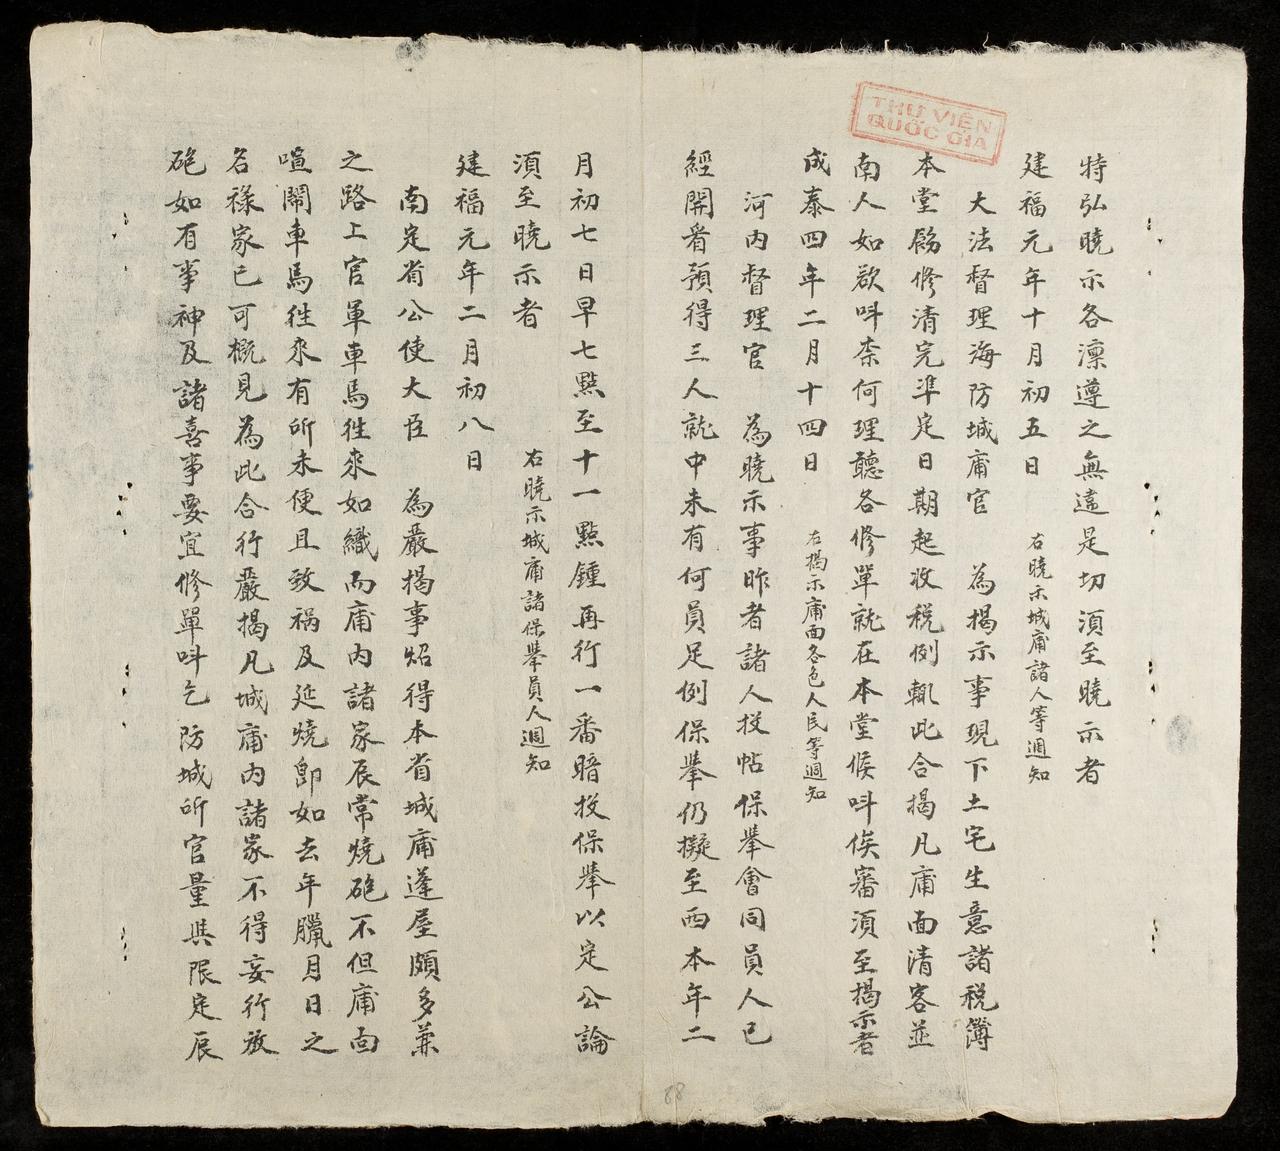 特弘曉示各凛遵之無違是切須至曉示者
建福元年十月初五日 右曉示城庯諸人等週知
大法督理海防城庯官 為揭示事現下土宅生意諸税簿
本堂飭修清完準定日期起收税例輒此合揭凡庯面清客並
南人如欲呌柰何理聽各修單就在本堂候呌俟審須至揭示者
成泰四年二月十四日 右揭示庯面各色人民等週知
河内督理官 為曉示事昨者諸人投帖保舉會同員人已
經開看預得三人就中未有何員足例保舉仍擬至西本年二
月初七日早七點至十一點鍾再行一番暗投保舉以定公論
須至曉示者
建福元年二月初八日 右曉示城庯諸保舉員人週知
南定省公使大臣 為嚴揭事炤得本省城庯蓬屋頗多兼
之路上官軍車馬徃來如織而庯内諸家辰常燒砲不但庯面
喧鬧車馬徃來有所未便且致祸及延燒即如去年臘月日之
名祿家已可概見為此合行嚴揭凡城庯内諸家不得妄行放
砲如有事神及諸喜事要宜修單呌乞防城所官量與限定辰
THƯ VIỆN
QUỐC GIA
88